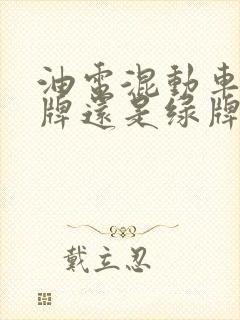 油電混動車
牌還是綠牌
戴立忍